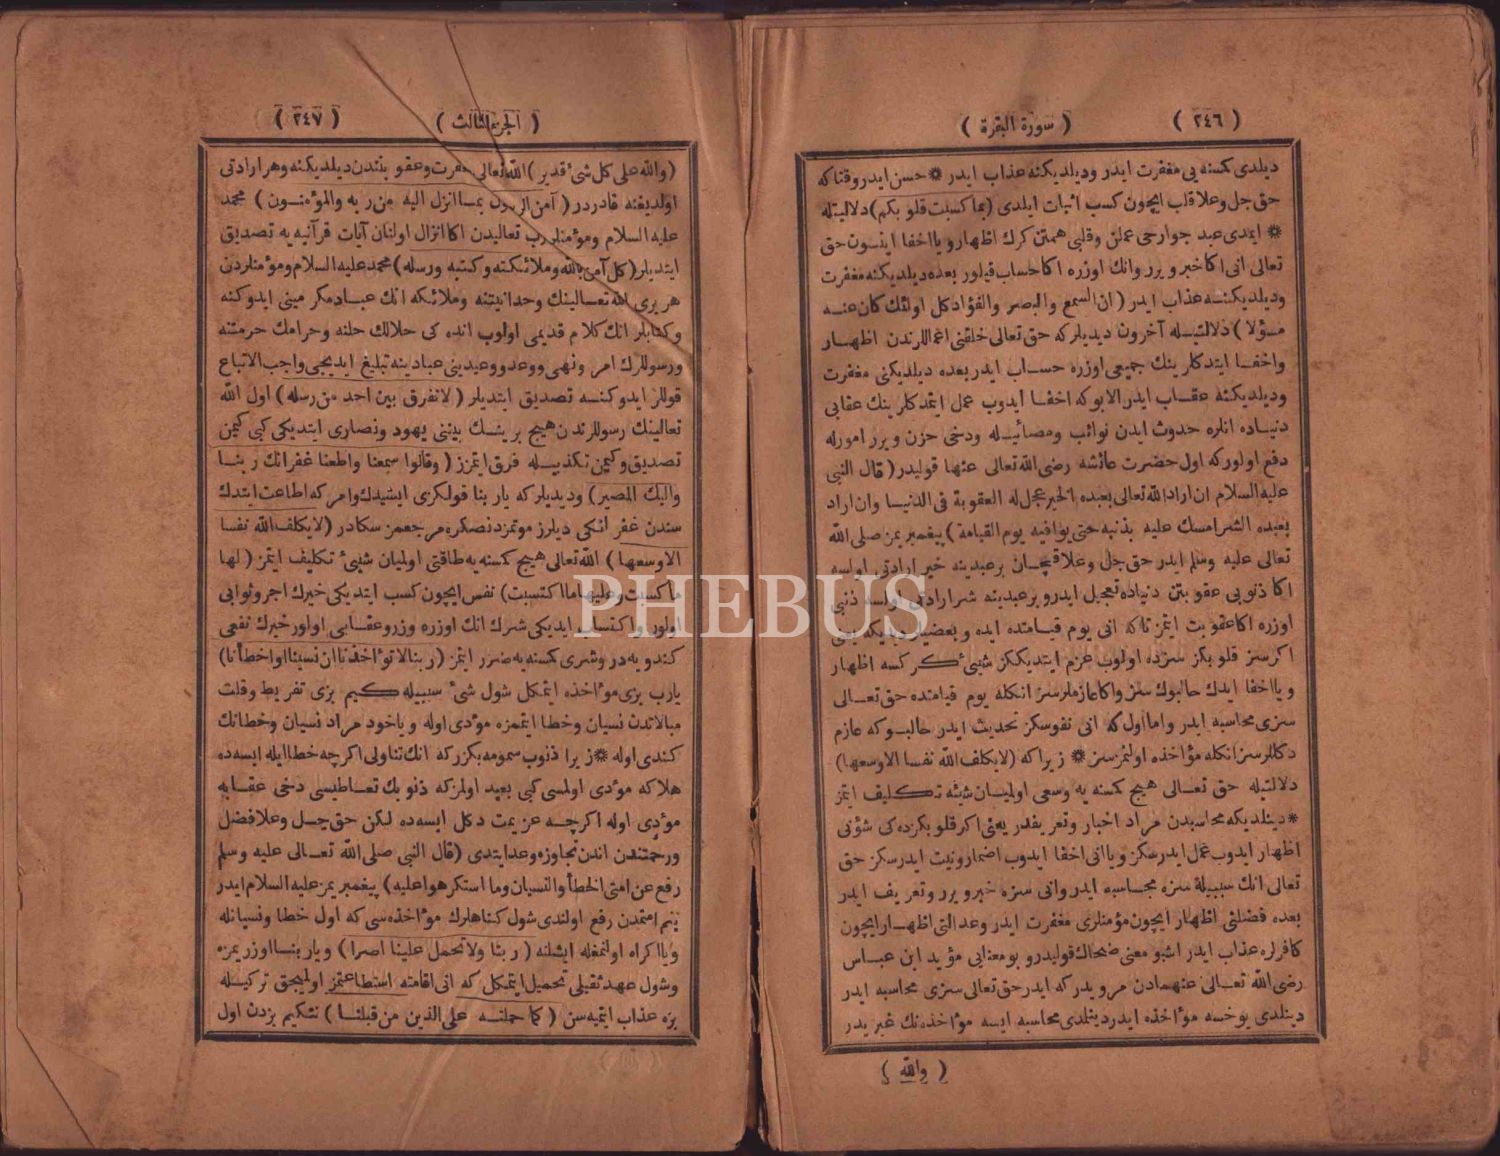 ( ٢٤٦ ) ( سورة البقرة )
ديلدى كمسنه يى مغفرت ايدر وديلديكنه عذاب ايدر * حسن ايدر وقتاكه
حق جل وعلا قلب ايچون كسب اثبات ايلدى (بما كسبت قلوبكم) دلالتيله
* ايمدى عبد جوارحى عملن وقلبى همتن كرك اظهار ويا اخفا ايتسون حق
تعالى انى اكا خبر ويرر وانك اوزره اكا حساب قيلور بعده ديلديكنه مغفرت
وديلديكنه عذاب ايدر ( ان السمع والبصر والفؤاد كل اولئك كان عنه
مسؤلا ) دلالتيله آخرون ديديلر كه حق تعالى خلقنى اعماللرندن اظهار
واخفا ايتدكلرينك جميعى اوزره حساب ايدر بعده ديلديكنى مغفرت
وديلديكنه عقاب ايدر الا بوكه اخفا ايدوب عمل ايتمدكلرينك عقابى
دنياده انلره حدوث ايدن نوائب ومصائبله ودخى حزن ويرر امورله
دفع اولور كه اول حضرت عائشه رضى الله تعالى عنها قوليدر ( قال النبى
عليه السلام ان اراد الله تعالى بعبده الخير عجل له العقوبة فى الدنيا وان اراد
بعبده الشر امسك عليه بذنبه حتى يوافيه يوم القيامة ) پيغمبريمز صلى الله
تعالى عليه وسلم ايدر حق جل وعلا قچان بر عبدينه خير ارادتى اولسه
اكا ذنوبى عقوبتن دنياده تعجيل ايدر وبر عبدينه شر ارادتى اولسه ذنبى
اوزره اكا عقوبت ايتمز تاكه انى يوم قيامتده ايده و بعضيلر
اكر سز قلوبكز سزده اولوب عزم ايتديككز شيئ كركسه اظهار
ويا اخفا ايدك حالبوك سز واكا عازملرسز انكله يوم قيامتده حق تعالى
سزى محاسبه ايدر واما اول كه انى نفوسكز تحديث ايدر حالبوكه عازم
دكللرسز انكله مؤاخذه اولنمزسز * زيرا كه (لا يكلف الله نفسا الا وسعها)
دلالتيله حق تعالى هيچ كمسنه يه وسعى اولميان شيئه تكليف ايتمز
* دينلديكه محاسبه دن مراد اخبار وتعريفدر يعنى اكر قلوبكزده كى شؤنى
اظهار ايدوب عمل ايدرسكز ويا انى اخفا ايدوب اضمار ونيت ايدرسكز حق
تعالى انك سببيله سزه محاسبه ايدر وانى سزه خبر ويرر وتعريف ايدر
بعده فضلنى اظهار ايچون مؤمنلرى مغفرت ايدر وعدالتى اظهار ايچون
كافرلره عذاب ايدر اشبو معنى ضحاك قوليدر و بو معنايى مؤيد ابن عباس
رضى الله تعالى عنهمادن مرويدر كه ايدر حق تعالى سزى محاسبه ايدر
دينلدى يوخسه مؤاخذه ايدر دينلدى محاسبه ايسه مؤاخذه نك غيريدر
( والله )
( الجزء الثالث ) ( ٢٤٧ )
( والله على كل شئ قدير ) الله تعالى مغفرت وعقوبتندن ديلديكنه وهر ارادتى
اولديغنه قادردر ( آمن الرسول بما انزل اليه من ربه والمؤمنون ) محمد
عليه السلام ومؤمنلر رب تعاليدن اكا انزال اولنان آيات قرآنيه يه تصديق
ايتديلر (كل آمن بالله وملائكته وكتبه ورسله) محمد عليه السلام ومؤمنلردن
هر برى الله تعالينك وحدانيتنه وملائكه انك عباد مكرمينى ايدوكنه
وكتابلر انك كلام قديمى اولوب انده كى حلالك حلنه وحرامك حرمتنه
ورسوللرك امر ونهى ووعد ووعيدينى عبادينه تبليغ ايديجى واجب الاتباع
قوللر ايدوكنه تصديق ايتديلر ( لا نفرق بين احد من رسله ) اول الله
تعالينك رسوللرندن هيچ برينك بيننى يهود ونصارى ايتديكى كبى كيمن
تصديق وكيمن تكذيبله فرق ايتمزز ( وقالوا سمعنا واطعنا غفرانك ربنا
واليك المصير ) وديديلر كه يا ربنا قولكزى ايشيدك وامركه اطاعت ايتدك
سندن غفرانكى ديلرز موتمزدنصكره مرجعمز سكادر ( لا يكلف الله نفسا
الا وسعها ) الله تعالى هيچ كمسنه يه طاقتى اولميان شيئ تكليف ايتمز ( لها
ما كسبت وعليها ما اكتسبت ) نفس ايچون كسب ايتديكى خيرك اجر وثوابى
اولور واكتساب ايديكى شرك انك اوزره وزر وعقابى اولور خيرك نفعى
كندويه در وشرى كمسنه يه ضرر ايتمز ( ربنا لا تؤاخذنا ان نسينا او اخطأنا)
يارب بزى مؤاخذه ايتمكل شول شئ سببيله كيم بزى تفريط وقلت
مبالاتدن نسيان وخطا ايتممزه مؤدى اوله و ياخود مراد نسيان وخطانك
كندى اوله * زيرا ذنوب سمومه بكزر كه انك تناولى اكرچه خطا ايله ايسه ده
هلاكه مؤدى اولمسى كبى بعيد اولمز كه ذنوبك تعاطيسى دخى عقابه
مؤدى اوله اكرچه عزيمت دكل ايسه ده لكن حق جل وعلا فضل
ورحمتندن اندن تجاوزه وعد ايتدى ( قال النبى صلى الله تعالى عليه وسلم
رفع عن امتى الخطأ والنسيان وما استكرهوا عليه ) پيغمبريمز عليه السلام ايدر
بنم امتمدن رفع اولندى شول كناهلرك مؤاخذه سى كه اول خطا ونسيانله
ويا اكراه اولنمغله ايشلنه ( ربنا ولا تحمل علينا اصرا ) ويا ربنا اوزريمزه
وشول عهد ثقيلى تحميل ايتمكل كه انى اقامته استطاعتمز اولميجق تركيله
بزه عذاب ايتميه سن ( كما حملته على الذين من قبلنا ) نتكيم بزدن اول
PHEBUS